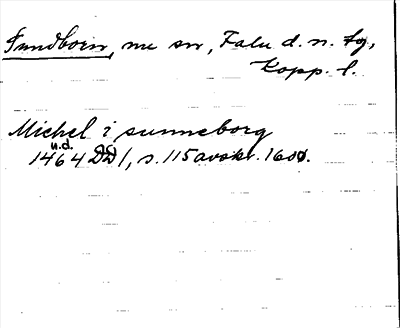 Sundborn, nu sn, Falu d. n. tg,
Kopp. l.
Michel i sunneborg
n.d.
1464 DD 1, s. 115 avskr. 1600.